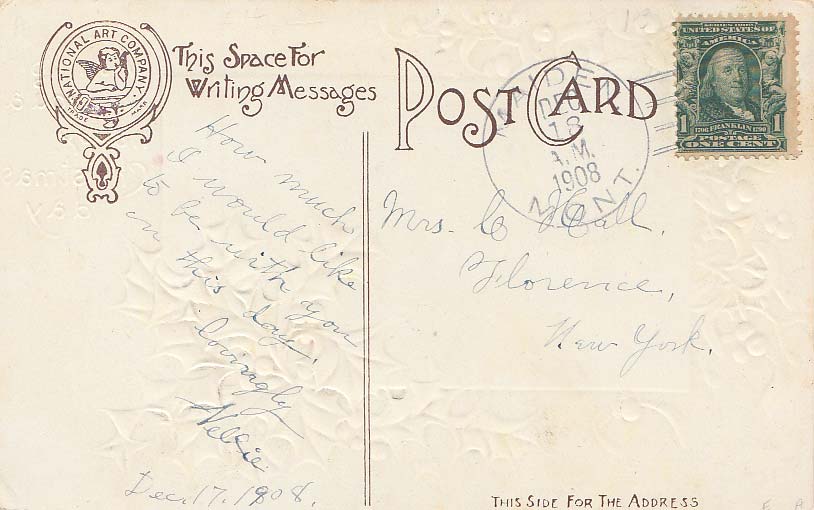 NATIONAL ART COMPANY
TRADE MARK
This Space For
Writing Messages
POST CARD
SERIES 1902
UNITED STATES OF
AMERICA
1706 FRANKLIN 1790
1 POSTAGE 1
ONE CENT
DEC
18
A.M.
1908
MONT.
How much
I would like
to be with you
on this day.
lovingly
Nellie
Dec. 17. 1908.
Mrs. C Hall,
Florence,
New York.
THIS SIDE FOR THE ADDRESS